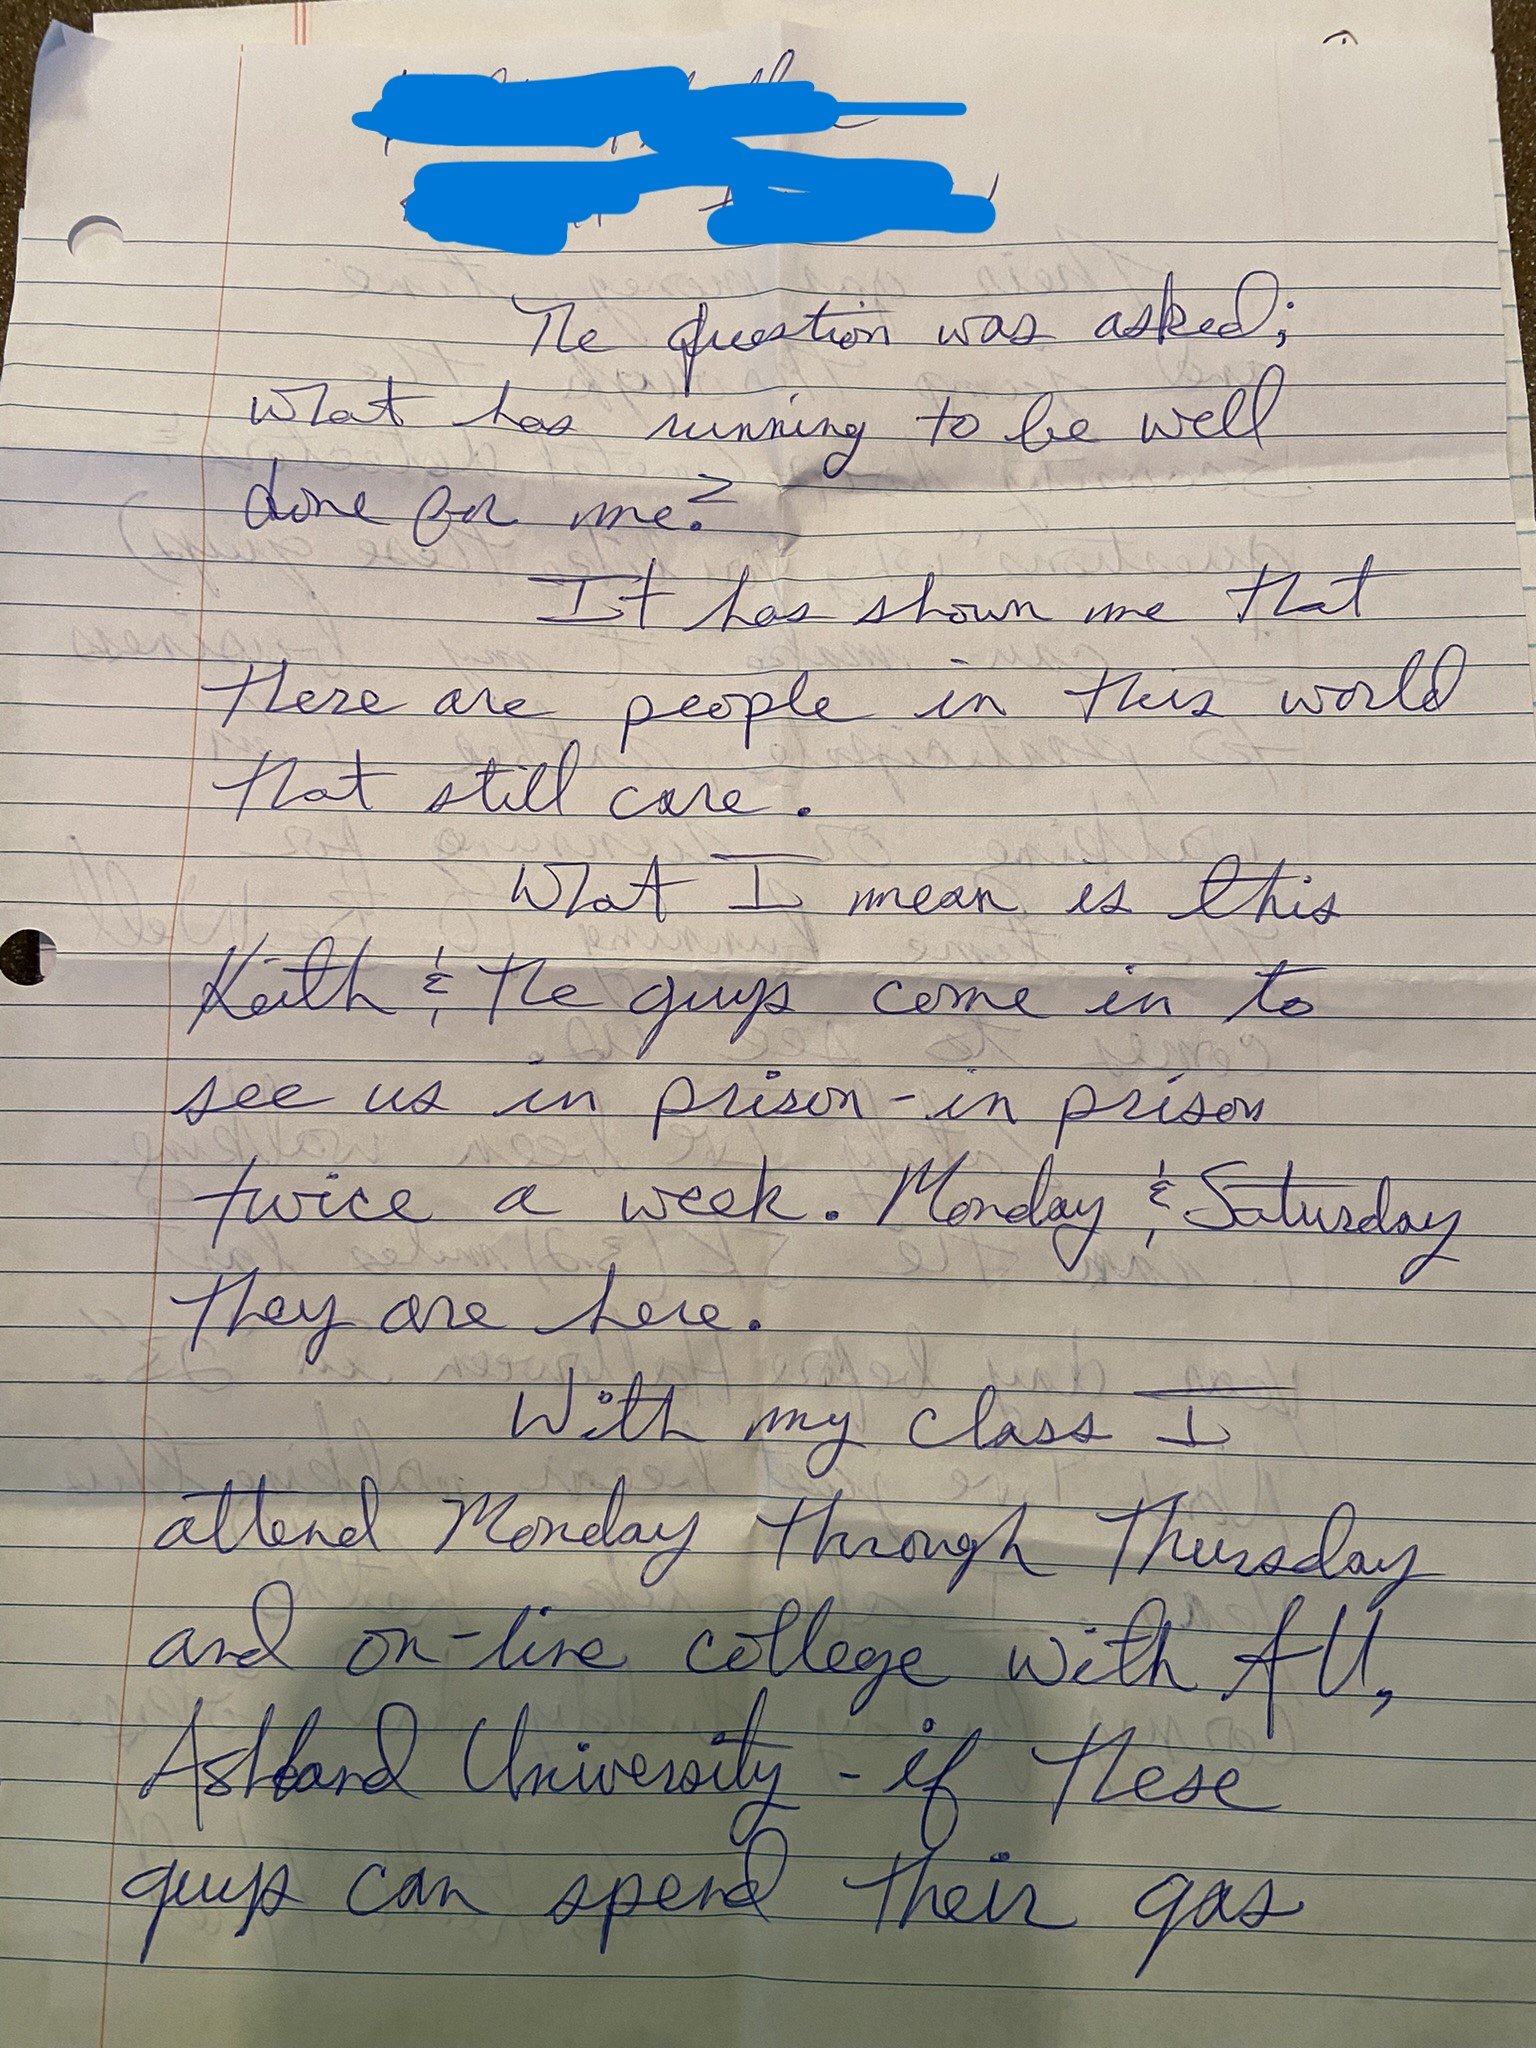 The question was asked;
what has running to be well
done for me?
It has shown me that
there are people in this world
that still care.
What I mean is this
Keith & the guys come in to
see us in prison - in prison
twice a week. Monday & Saturday
they are here.
With my class I
attend Monday through Thursday
and on-line college with AU,
Ashland University - if these
guys can spend their gas